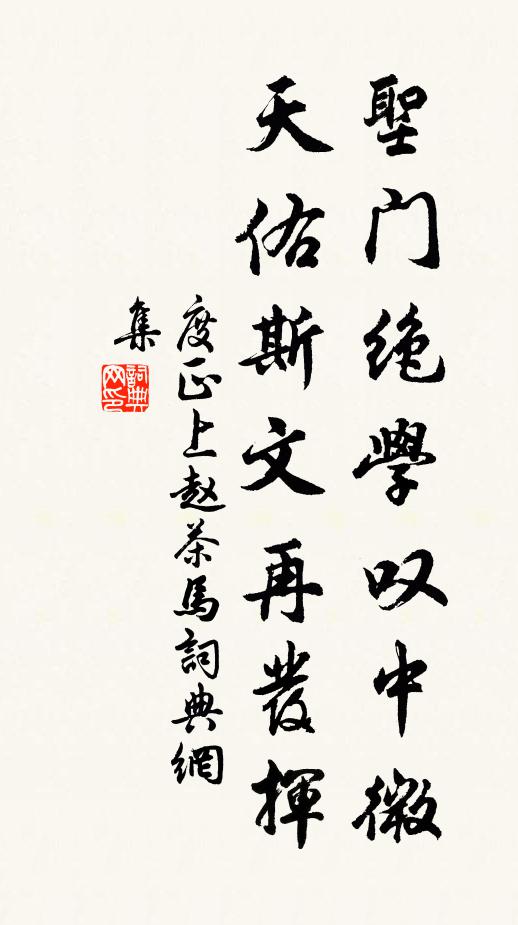 聖门绝學叹中微
天佑斯文再發揮
度正上赵茶馬詞典網
集
詞典
网印